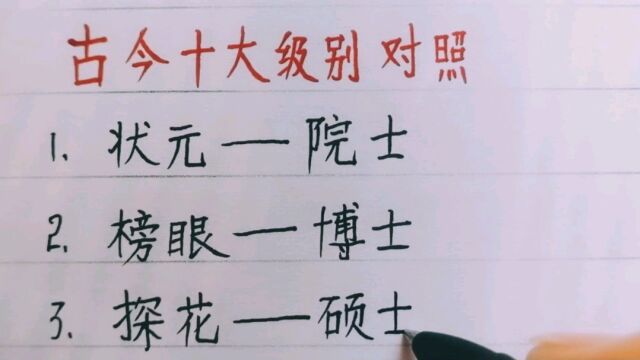 古今十大级别对照
1. 状元——院士
2. 榜眼——博士
3. 探花——硕士